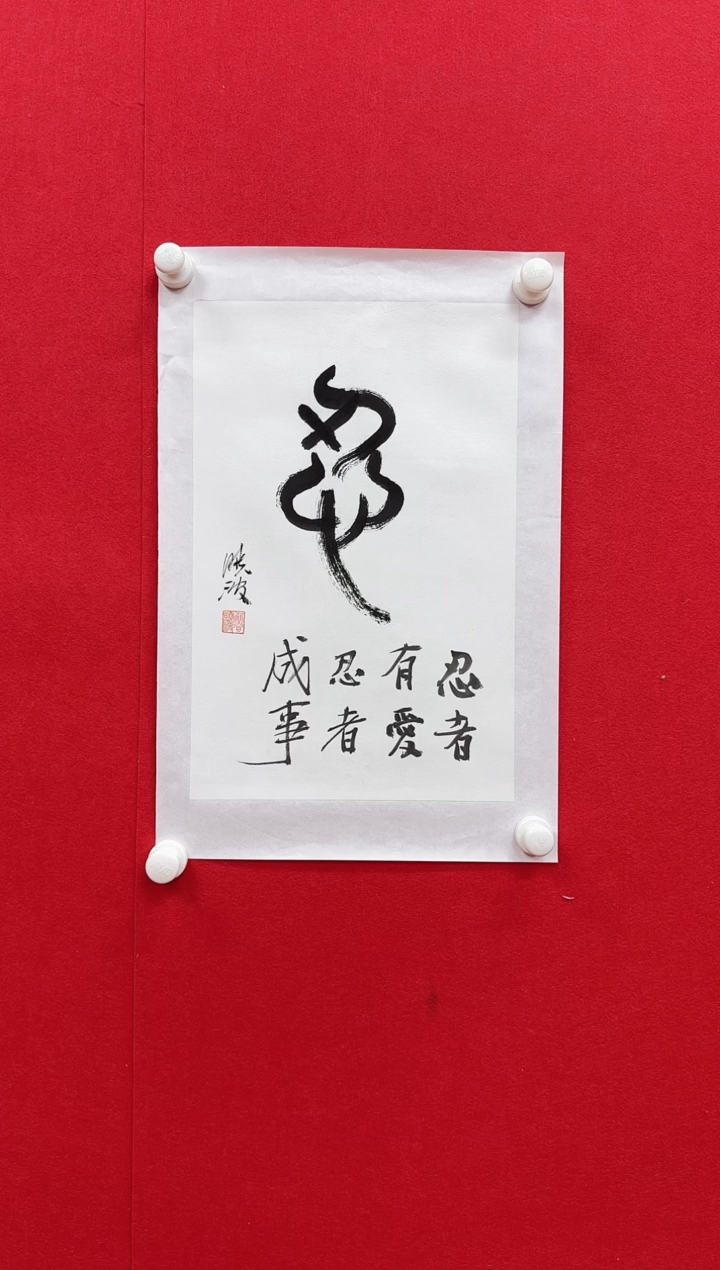 忍
忍者
有愛
忍者
成事
映波